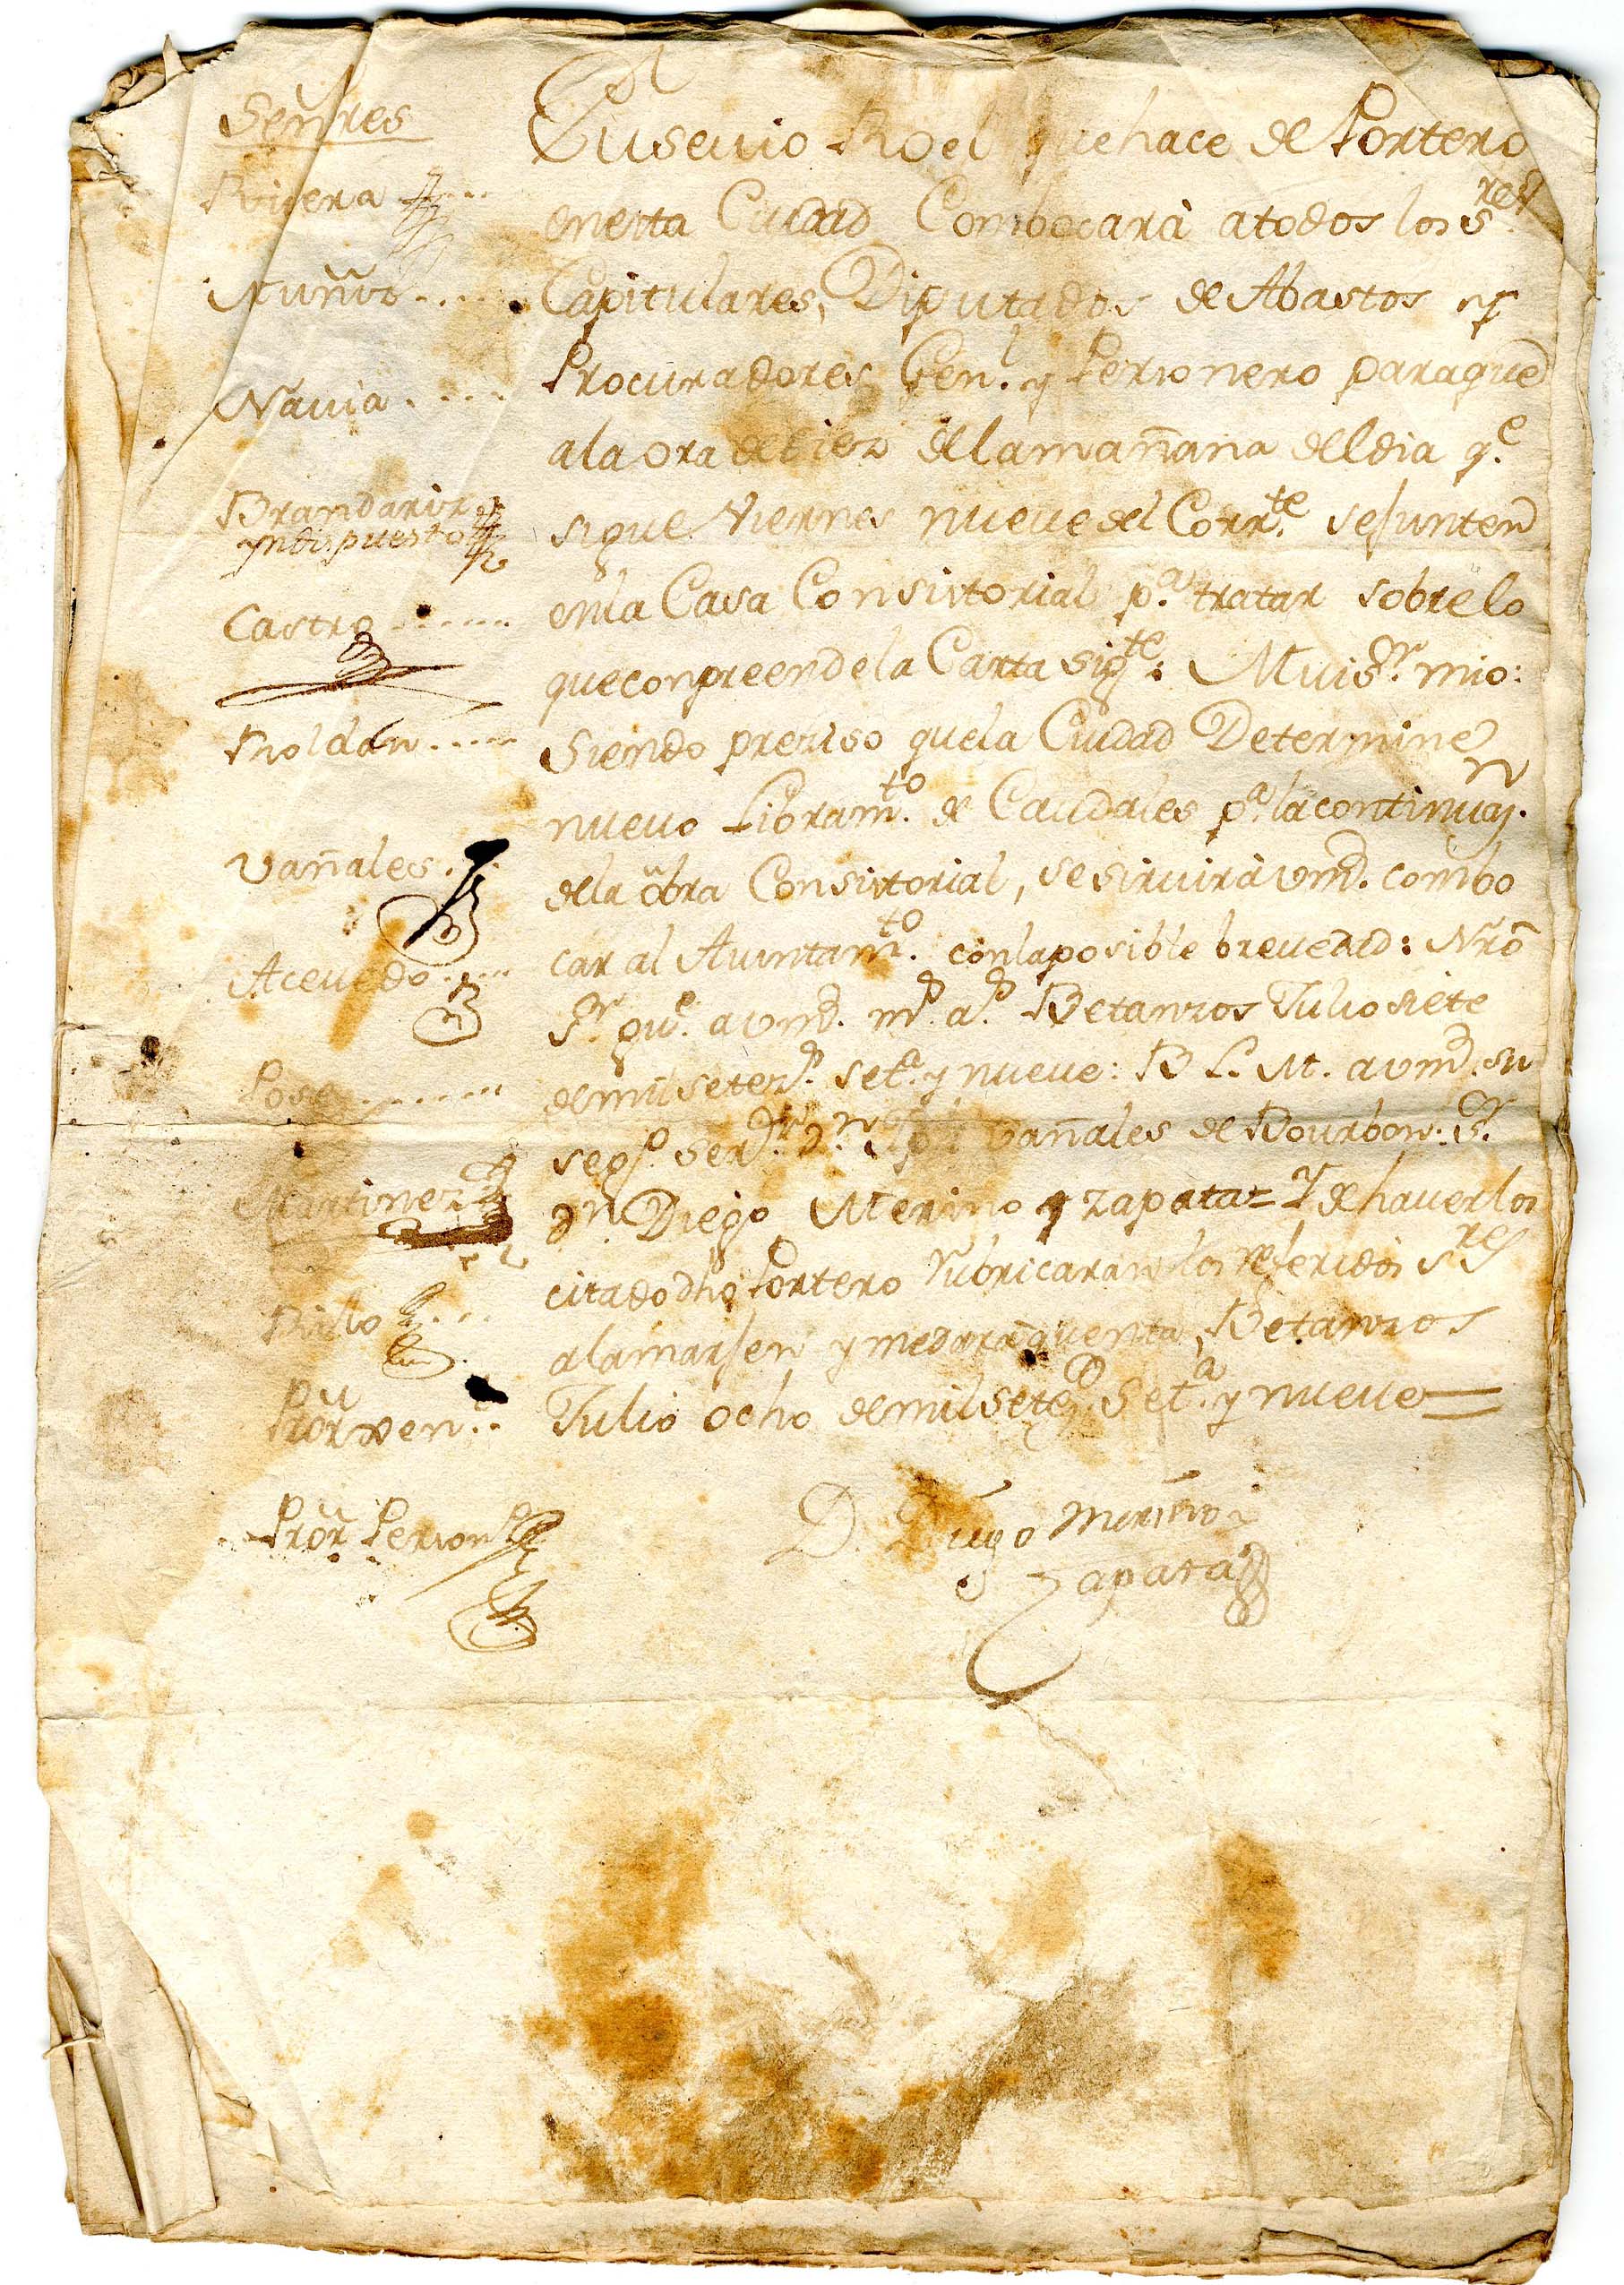 Señres
Rivera
Nuñiz
Navia
Brandariz
yndispuesto
Castro
Roldán
Vañales
Acevedo
Pose
Martinez
Rillo
Pror Gen.
Pror Person.
Eusevio Roel que hace de Portero
enesta Ciudad Combocarà atodos los S.res
Capitulares, Diputados de Abastos y
Procuradores Gen.l y Personero paraque
ala ora de diez dela mañana deldia q.e
sigue Viernes nueve del Corr.te seJunten
enla Casa Consistorial p.a tratar sobrelo
queconpreendela Carta sig.te: Mui S.r mio:
Siendo preziso quela Ciudad Determine
nuevo Libram.to de Caudales p.a lacontinuaz.n
dela obra Consistorial, sesirvirà vmd. combo
car al Auintam.to conlaposible brevedad: Nrō
S.r gu.e avmd. m.s a.s Betanzos Julio siete
demil setez.s set.a y nueve: B L. M. avmd. su
seg.o ser.or D.n Vañales de Bourbon. S.r
D.n Diego Merino y Zapata= Y de haverlos
citado dho Portero rubricaran los referidos S.res
alamarJen y medarà quenta, Betanzos
Julio ocho demilsetez.s Set.a y nueve=
D. Diego Merino i
zapata